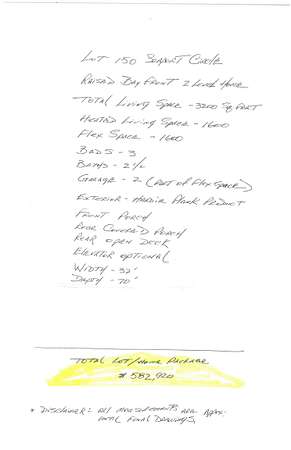 LOT 150 SUNSET Circle
RAISED BAY FRONT 2 Level Home
TOTAL Living Space - 3200 Sq. Feet
HEATED Living Space - 1600
Flex Space - 1600
BEDS - 3
BATHS - 2 1/2
GARAGE - 2 (PART OF Flex Space)
EXTERIOR - HARDIE Plank Product
FRONT PORCH
REAR COVERED PORCH
REAR OPEN DECK
ELEVATOR OPTIONAL
WIDTH - 32'
DEPTH - 70'
TOTAL LOT/HOME PACKAGE
$ 582,920
* DISCLAIMER: All measurements ARE Approx.
UNTIL FINAL DRAWINGS